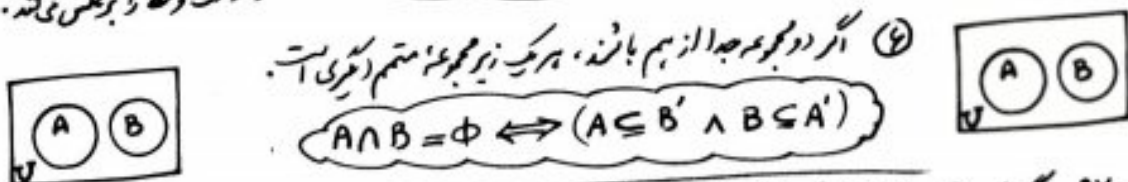 را برعکس می‌کند.
۶ اگر دو مجموعه جدا از هم باشند، هر یک زیرمجموعهٔ متمم دیگری است.
A B U
A∩B=Φ ⟺ (A⊆B′ ∧ B⊆A′)
A B U